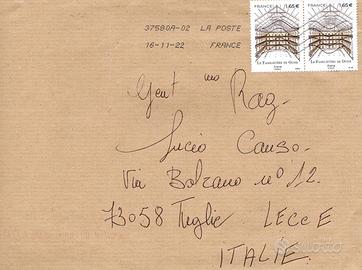 37580A-02 LA POSTE
16-11-22 FRANCE
FRANCE 1,65€
FRANCE 1,65€
LE FAMILISTÈRE DE GUISE
LE FAMILISTÈRE DE GUISE
Gent mo Rag.
Lucio Causo.
Via Bolzano n° 12.
73058 Tuglie LECCE
ITALIE.
subito